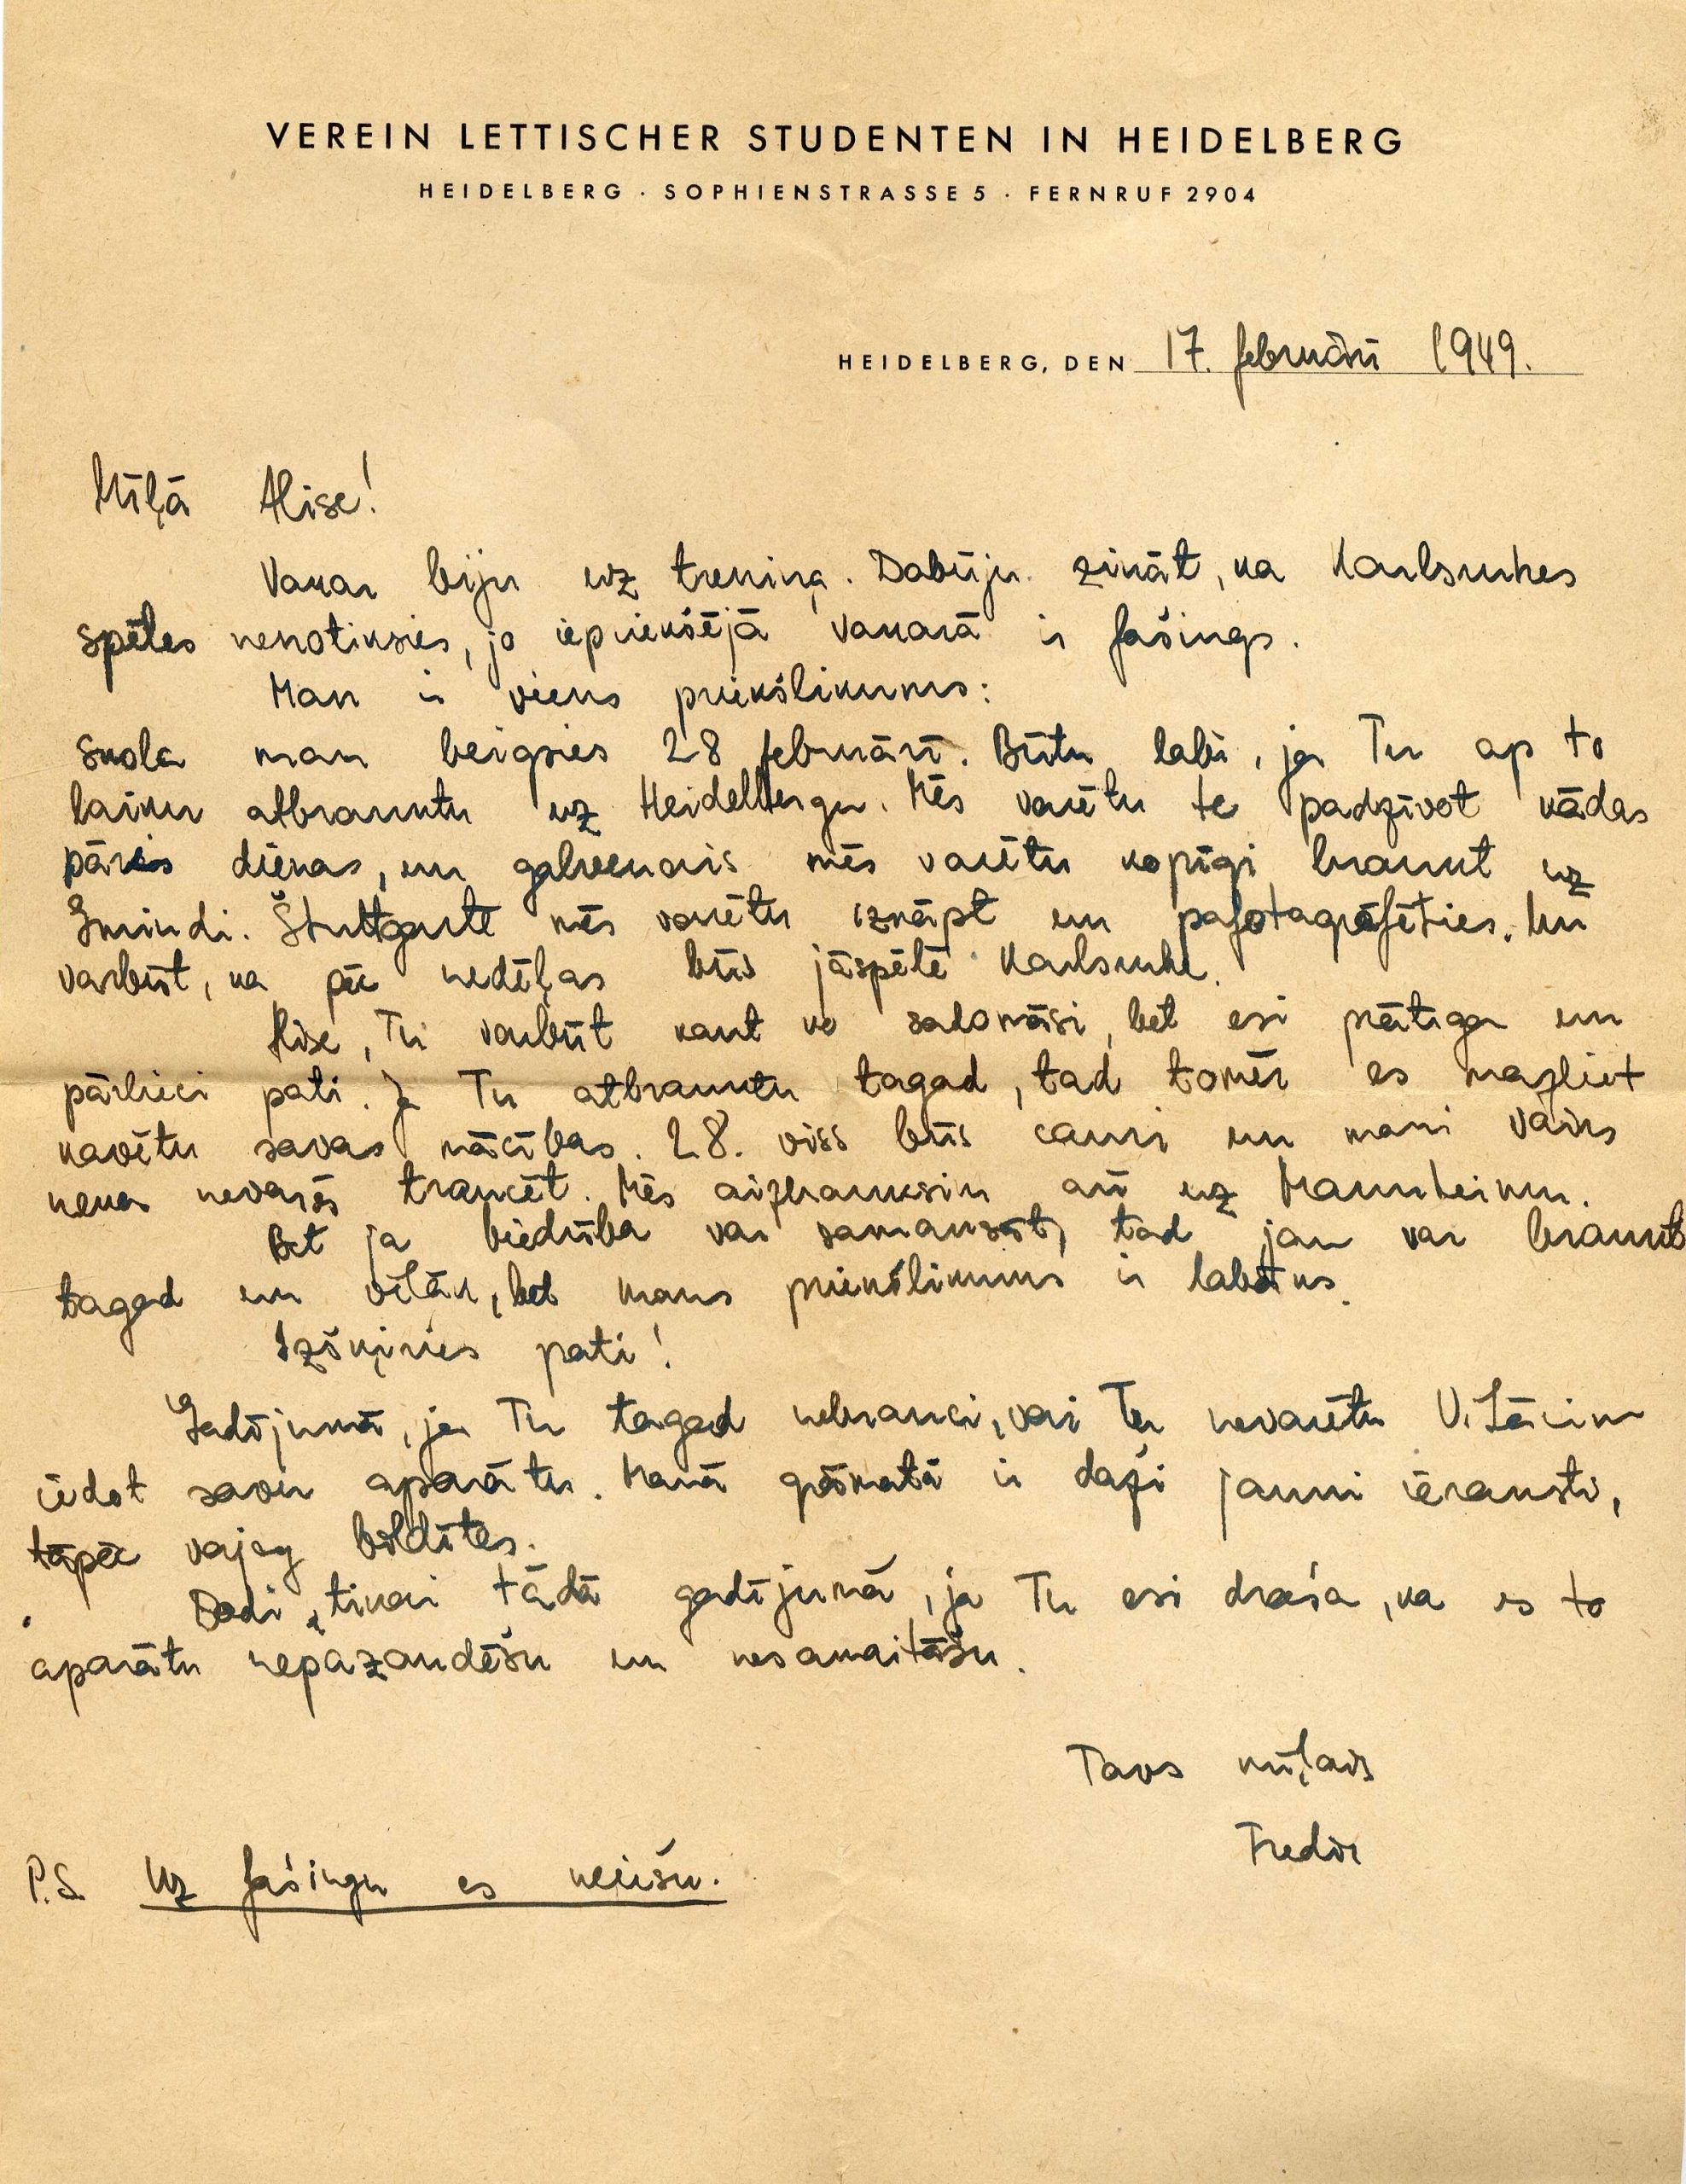 VEREIN LETTISCHER STUDENTEN IN HEIDELBERG
HEIDELBERG · SOPHIENSTRASSE 5 · FERNRUF 2904
HEIDELBERG, DEN 17. februārī 1949.
Mīļā Alise!
Vakar biju uz treniņa. Dabūju zināt, ka Karlsruhes
spēles nenotiksies, jo iepriekšējā vakarā ir fašings.
Man ir viens priekšlikums:
Skola man beigsies 28 februārī. Būtu labi, ja Tu ap to
laiku atbrauktu uz Heidelbergu. Mēs varētu te padzīvot kādas
pāris dienas, un galvenais mēs varētu kopīgi braukt uz
Gmindi. Štuttgartē mēs varētu izkāpt un pafotagrāfēties. Un
varbūt, ka pēc nedēļas būs jāspēlē Karlsruhē.
Alise, Tu varbūt kaut ko sadomāsi, bet esi prātīga un
pārliec pati. Ja Tu atbrauktu tagad, tad tomēr es mazliet
kavētu savas mācības. 28. viss būs cauri un mani vairs
nekas nevarēs traucēt. Mēs aizbrauksim arī uz Mannheimu.
Bet ja biedrība var samaksāt, tad jau var braukt
tagad un vēlāk, bet mans priekšlikums ir labāks.
Izšķiries pati!
Gadījumā, ja Tu tagad nebrauci, vai Tu nevarētu V. Lācim
iedot savu aparātu. Manā grāmatā ir daži jauni ieraksti,
tāpēc vajag bildītes.
Dodi tikai tādā gadījumā, ja Tu esi droša, ka es to
aparātu nepazaudēšu un nesamaitāšu.
Tavs mīļais
Fredis
P.S. Uz fašingu es neiešu.